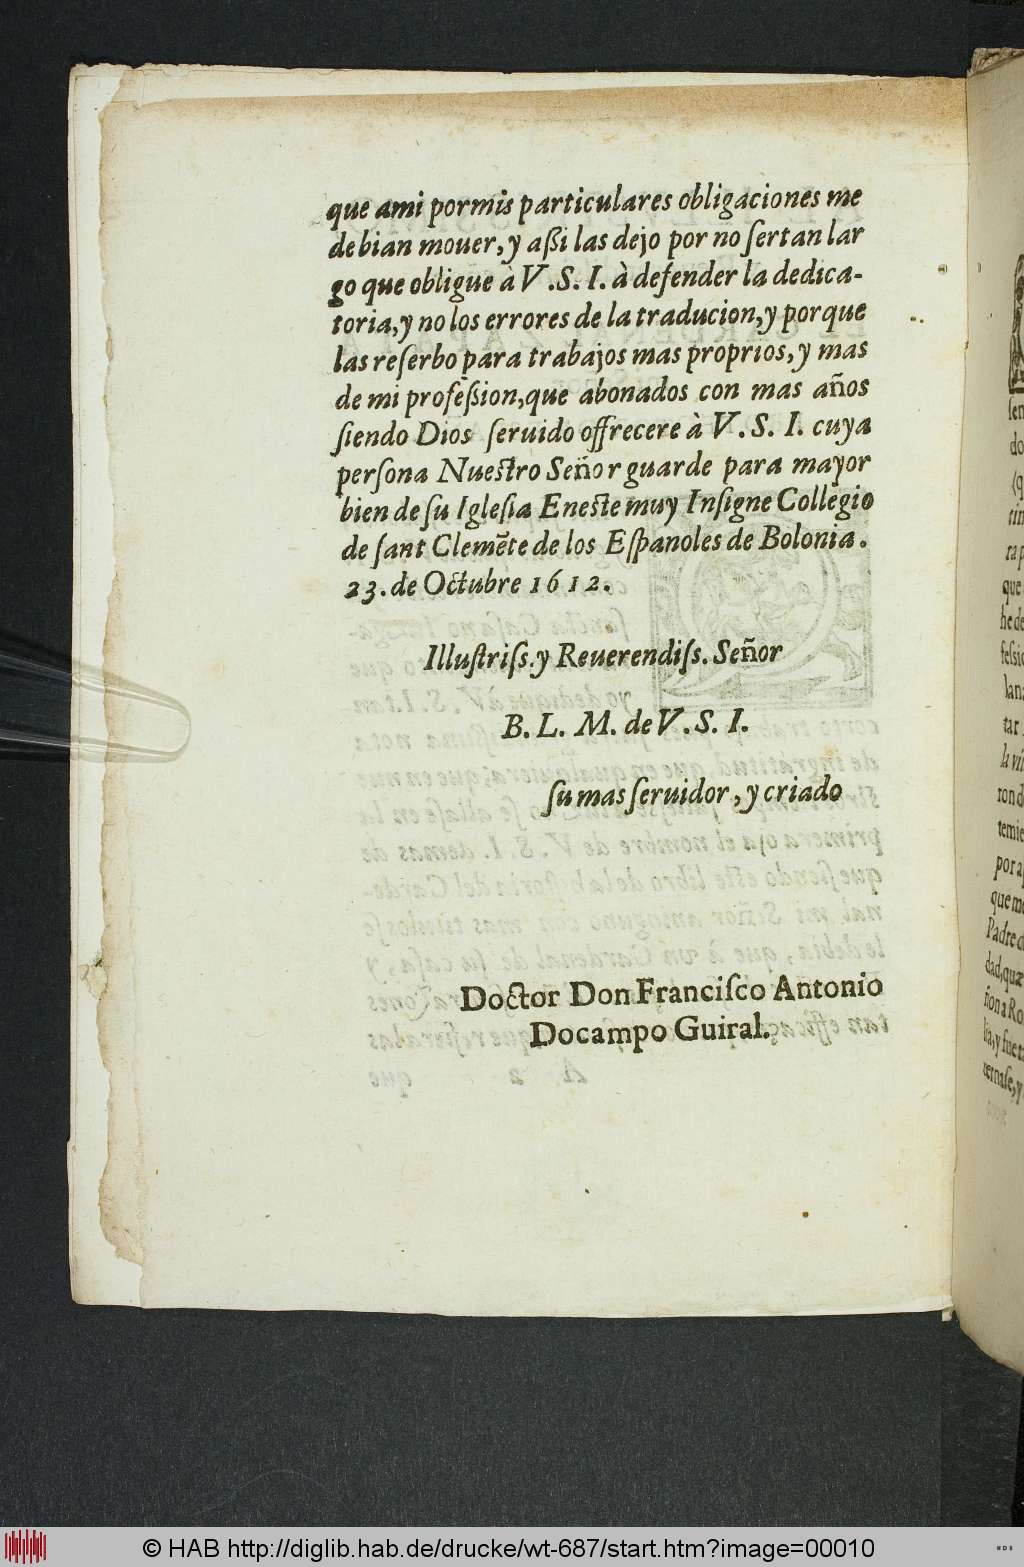 que ami pormis particulares obligaciones me
debian mouer, y aßi las dejo por no ſertan lar
go que obligue à V.S. I. à defender la dedica-
toria, y no los errores de la traducion, y porque
las reſerbo para trabajos mas proprios, y mas
de mi profeßion, que abonados con mas años
ſiendo Dios ſeruido offrecere à V. S. I. cuya
perſona Nueſtro Señor guarde para mayor
bien de ſu Igleſia Eneſte muy Inſigne Collegio
de ſant Clemẽte de los Eſpanoles de Bolonia.
23. de Octubre 1612.
Illuſtriſs. y Reuerendiſs. Señor
B. L. M. de V. S. I.
ſu mas ſeruidor, y criado
Doctor Don Franciſco Antonio
Docampo Guiral.
© HAB http://diglib.hab.de/drucke/wt-687/start.htm?image=00010